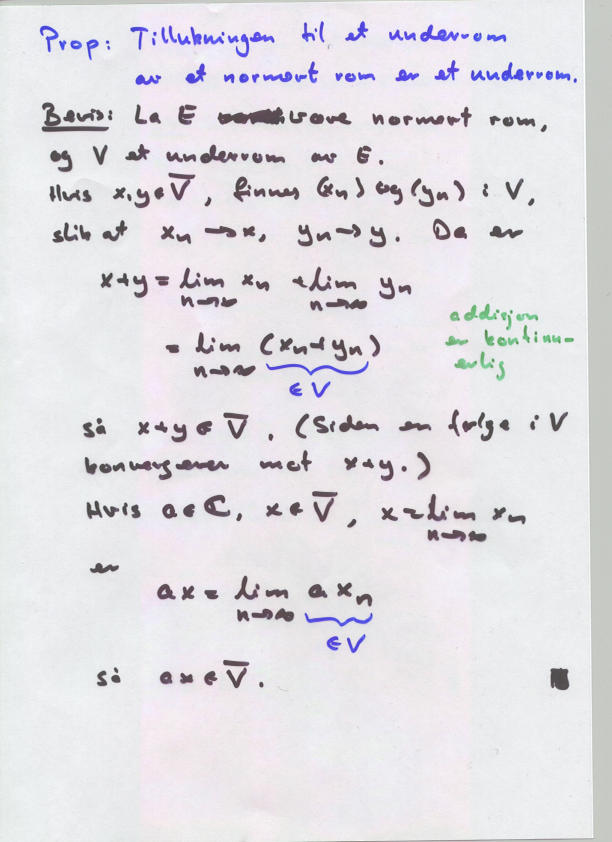 Prop: Tillukningen til et underrom
av et normert rom er et underrom.
Bevis: La E være normert rom,
og V et underrom av E.
Hvis x,y ∈ V̅, finnes (xₙ) og (yₙ) i V,
slik at xₙ → x, yₙ → y. Da er
x+y = lim_{n→∞} xₙ + lim_{n→∞} yₙ
= lim_{n→∞} (xₙ+yₙ)
∈ V
addisjon
er kontinu-
erlig
så x+y ∈ V̅. (Siden en følge i V
konvergerer mot x+y.)
Hvis a ∈ ℂ, x ∈ V̅, x = lim_{n→∞} xₙ
er
ax = lim_{n→∞} a xₙ
∈ V
så ax ∈ V̅.